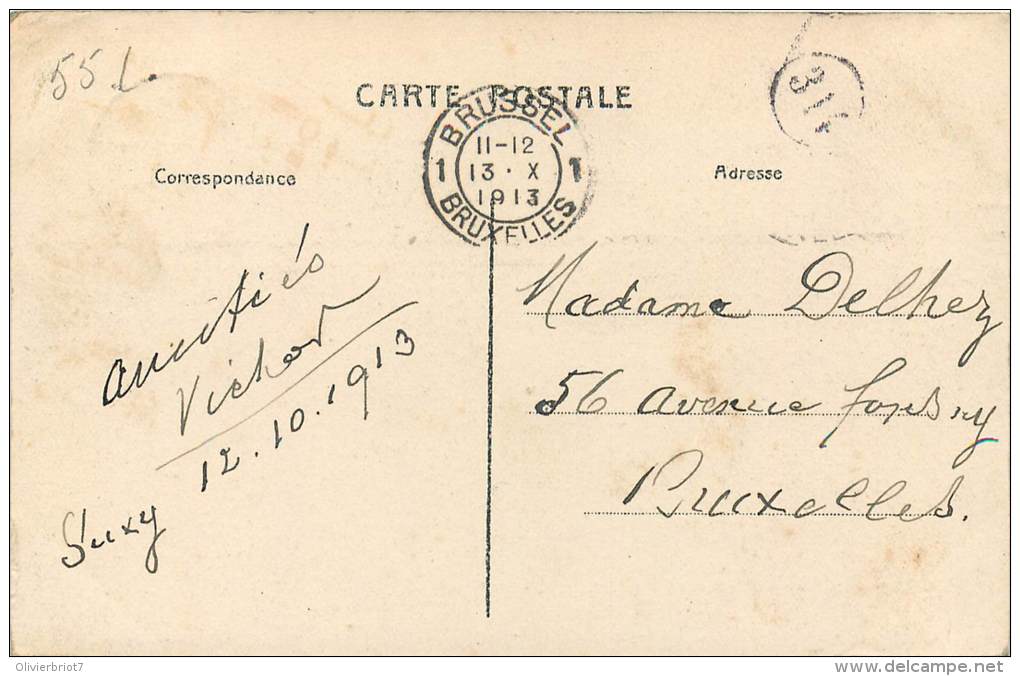 55 L.
CARTE POSTALE
BRUSSEL
11-12
13 · X
1913
BRUXELLES
1 1
Correspondance
Adresse
amitiés
Victor
12.10.1913
Suxy
Madame Delhez
56 avenue
Bruxelles.
Olivierbriot7
www.delcampe.net